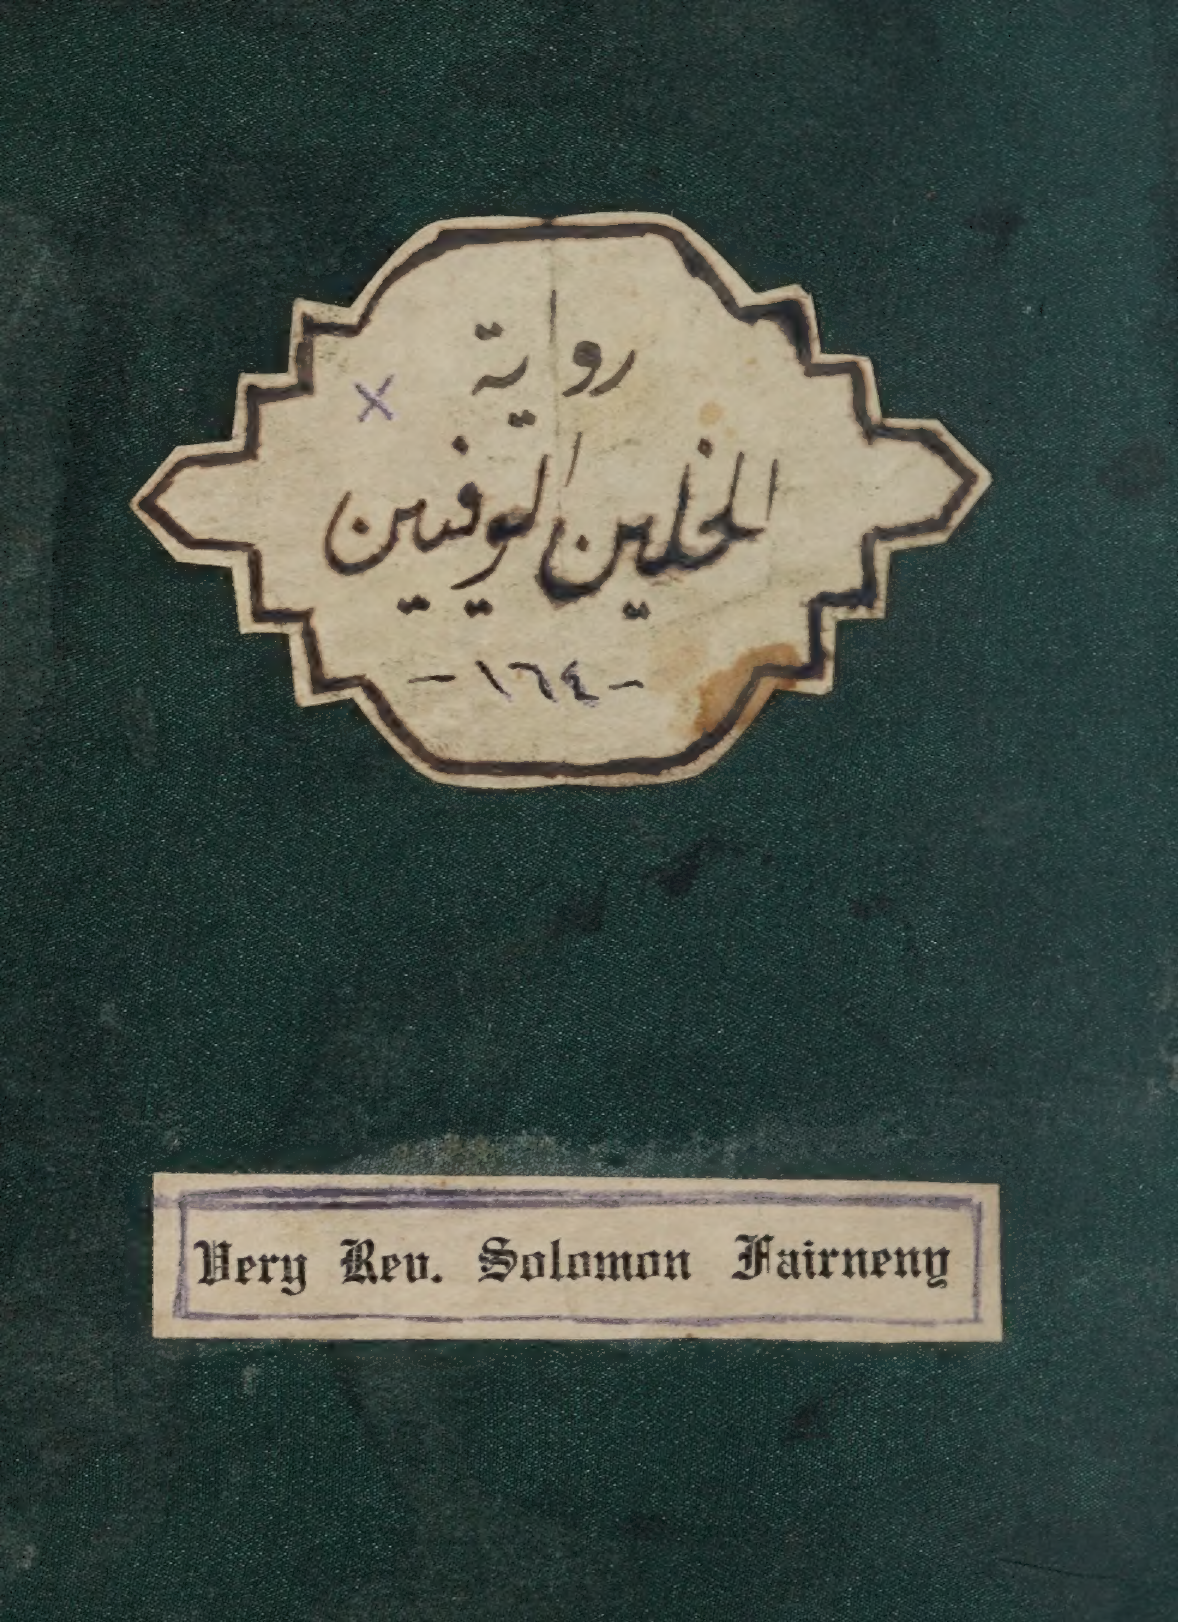 روية
الخلين الوفيين
-١٦٤-
X
Very Rev. Solomon Fairneny